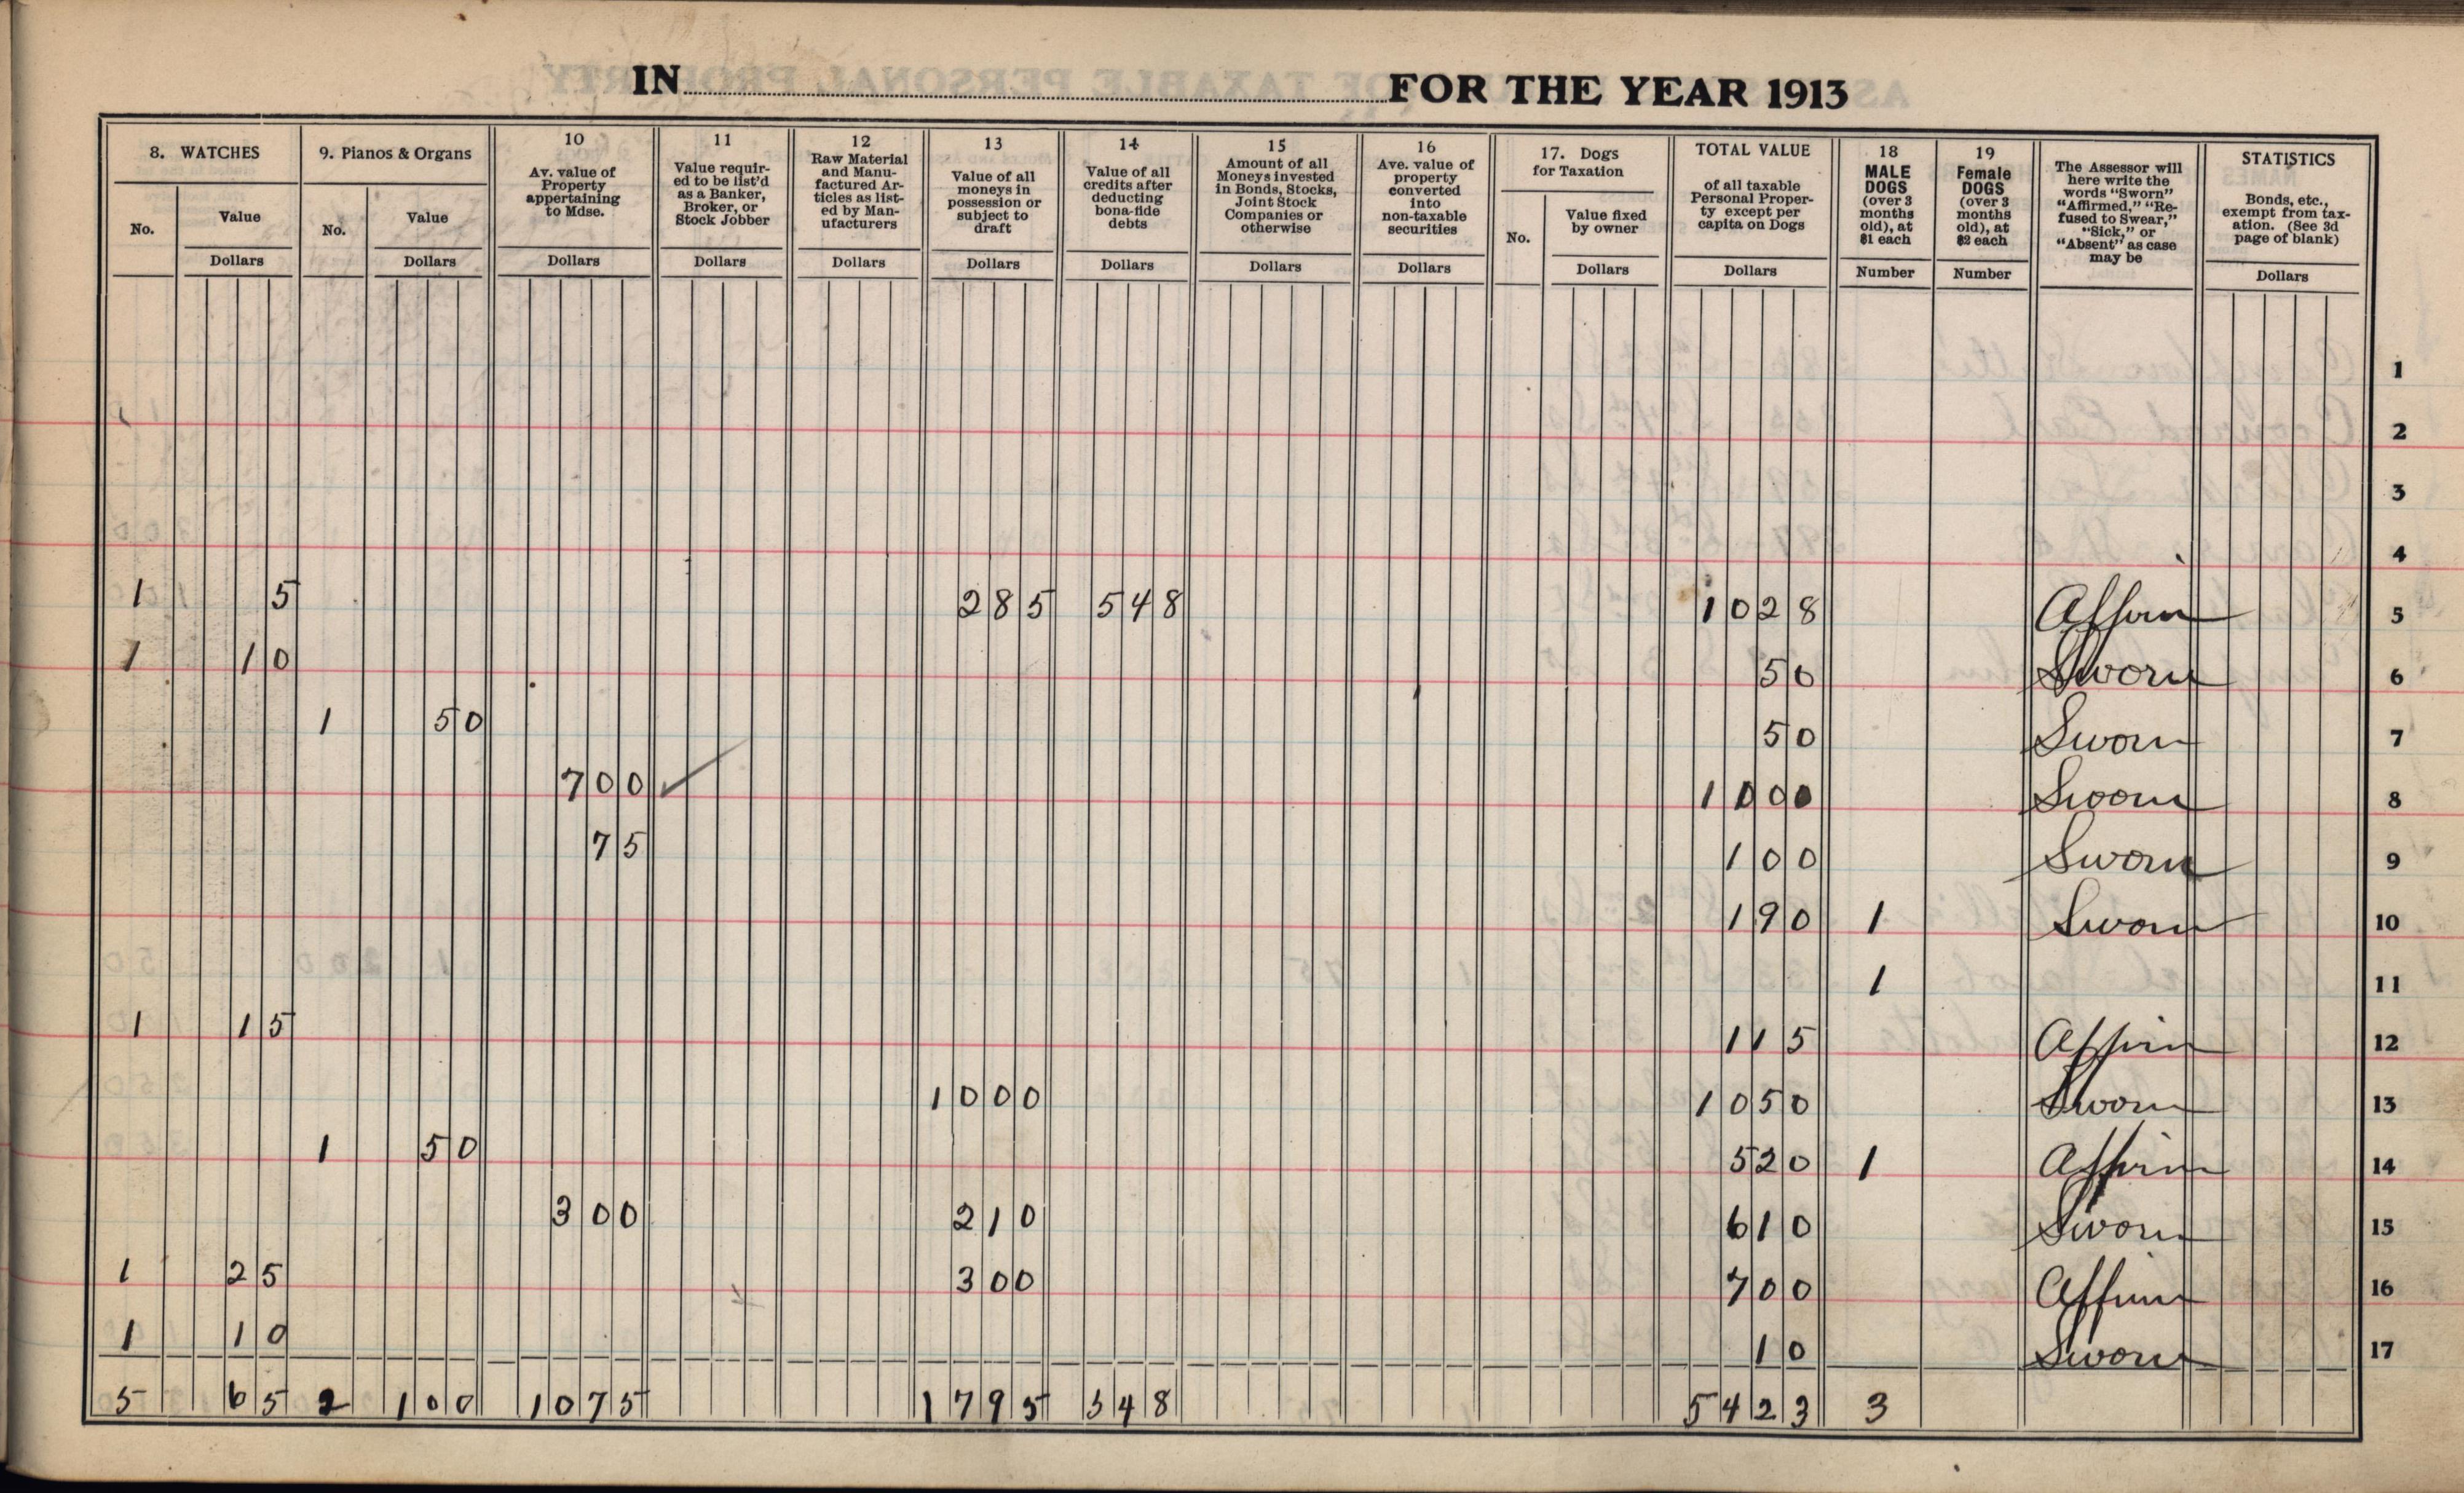 IN FOR THE YEAR 1913
8. WATCHES
No.
Value
Dollars
9. Pianos & Organs
No.
Value
Dollars
10
Av. value of
Property
appertaining
to Mdse.
Dollars
11
Value requir-
ed to be list'd
as a Banker,
Broker, or
Stock Jobber
Dollars
12
Raw Material
and Manu-
factured Ar-
ticles as list-
ed by Man-
ufacturers
Dollars
13
Value of all
moneys in
possession or
subject to
draft
Dollars
14
Value of all
credits after
deducting
bona-fide
debts
Dollars
15
Amount of all
Moneys invested
in Bonds, Stocks,
Joint Stock
Companies or
otherwise
Dollars
16
Ave. value of
property
converted
into
non-taxable
securities
Dollars
17. Dogs
for Taxation
No.
Value fixed
by owner
Dollars
TOTAL VALUE
of all taxable
Personal Proper-
ty except per
capita on Dogs
Dollars
18
MALE
DOGS
(over 3
months
old), at
$1 each
Number
19
Female
DOGS
(over 3
months
old), at
$2 each
Number
The Assessor will
here write the
words "Sworn"
"Affirmed," "Re-
fused to Swear,"
"Sick," or
"Absent" as case
may be
STATISTICS
Bonds, etc.,
exempt from tax-
ation. (See 3d
page of blank)
Dollars
1
2
3
4
1 5 285 548 1028 Affirm 5
1 10 50 Sworn 6
1 50 50 Sworn 7
700 1000 Sworn 8
75 100 Sworn 9
190 1 Sworn 10
1 11
1 15 115 Affirm 12
1000 1050 Sworn 13
1 50 520 1 Affirm 14
300 210 610 Sworn 15
1 25 300 700 Affirm 16
1 10 10 Sworn 17
5 65 2 100 1075 1795 548 5423 3